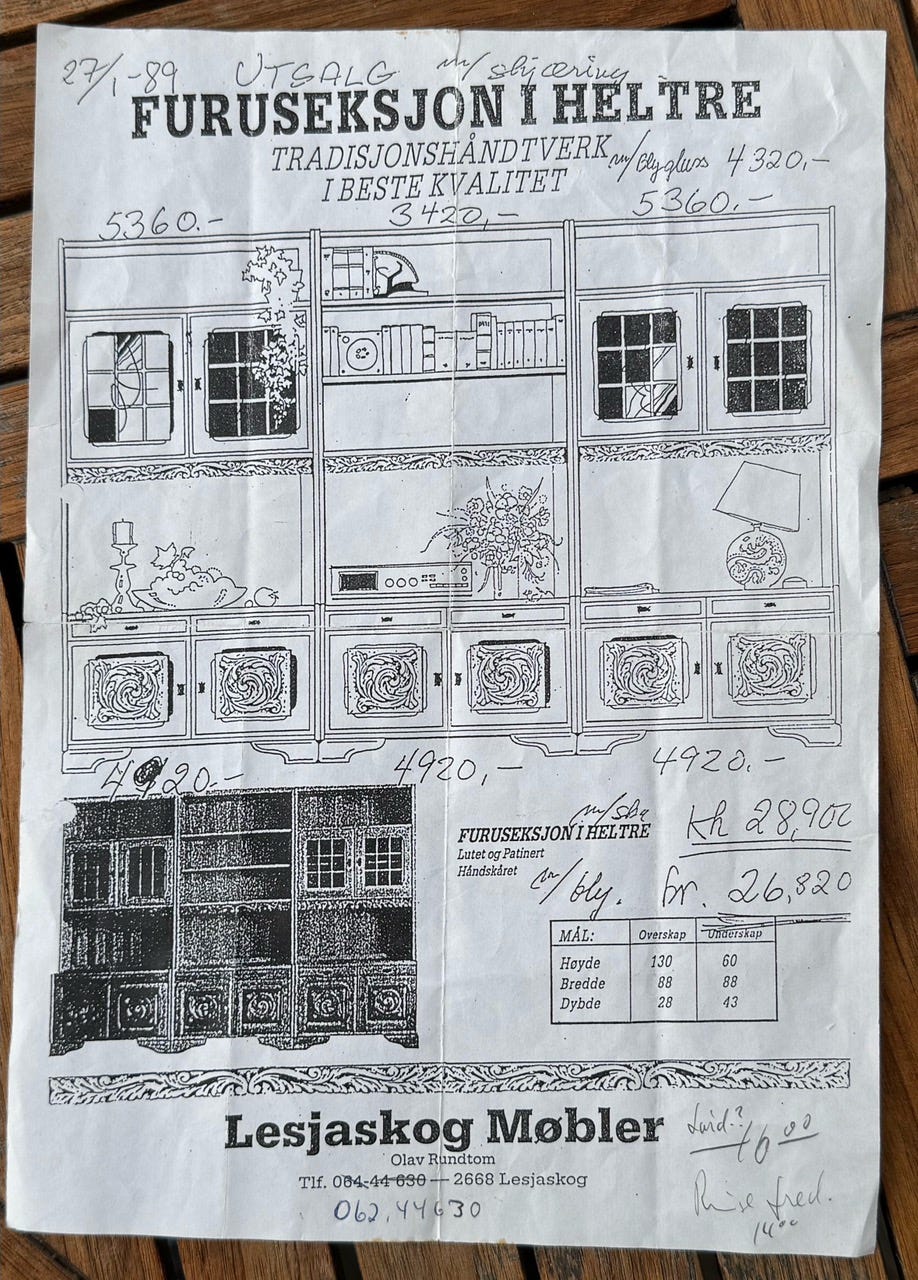 27/1-89 UTSALG m/skjæring
FURUSEKSJON I HELTRE
TRADISJONSHÅNDTVERK m/blyglass 4320,-
I BESTE KVALITET
5360.- 3420,- 5360.-
4920.- 4920,- 4920.-
m/skj
FURUSEKSJON I HELTRE
Kr 28,900
Lutet og Patinert
Håndskåret
m/bly. fr. 26,820
MÅL: Overskap Underskap
Høyde 130 60
Bredde 88 88
Dybde 28 43
Lesjaskog Møbler
Olav Rundtom
Tlf. 064-44 630 — 2668 Lesjaskog
062.44630
16 00
fred.
14 00